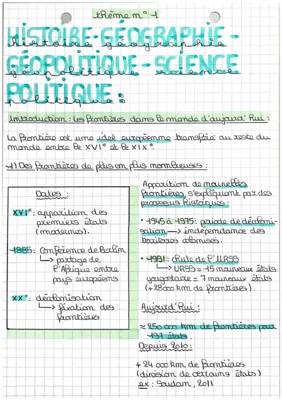 thème n°1
HISTOIRE-GÉOGRAPHIE-
histoire géographie
GÉOPOLITIQUE-SCIENCE
géopolitique science
POLITIQUE:
politique:
Introduction: les frontières dans le monde d'aujourd'hui:
La frontière est une idée européenne transférée au reste du
monde entre le XVI° et le XIX°.
1) Des frontières de plus en plus nombreuses:
Dates:
XVI°: apparition des
premiers états
(modernes).
1885: Conférence de Berlin
↳ partage de
l'Afrique entre
pays européens
XX°: décolonisation
↳ fixation des
frontières
Apparition de nouvelles
frontières s'expliquent par des
processus historiques:
• 1945 à 1975: période de décoloni-
sation → indépendance des
territoires colonisés.
• 1991: chute de l'URSS
↳ URSS = 15 nouveaux états
yougoslavie = 7 nouveaux états
(+28000 km de frontières)
Aujourd'hui:
≈ 250 000 km de frontières pour
197 états.
Depuis 2010:
+ 24 000 km de frontières
(division de certains états)
ex: Soudan, 2011